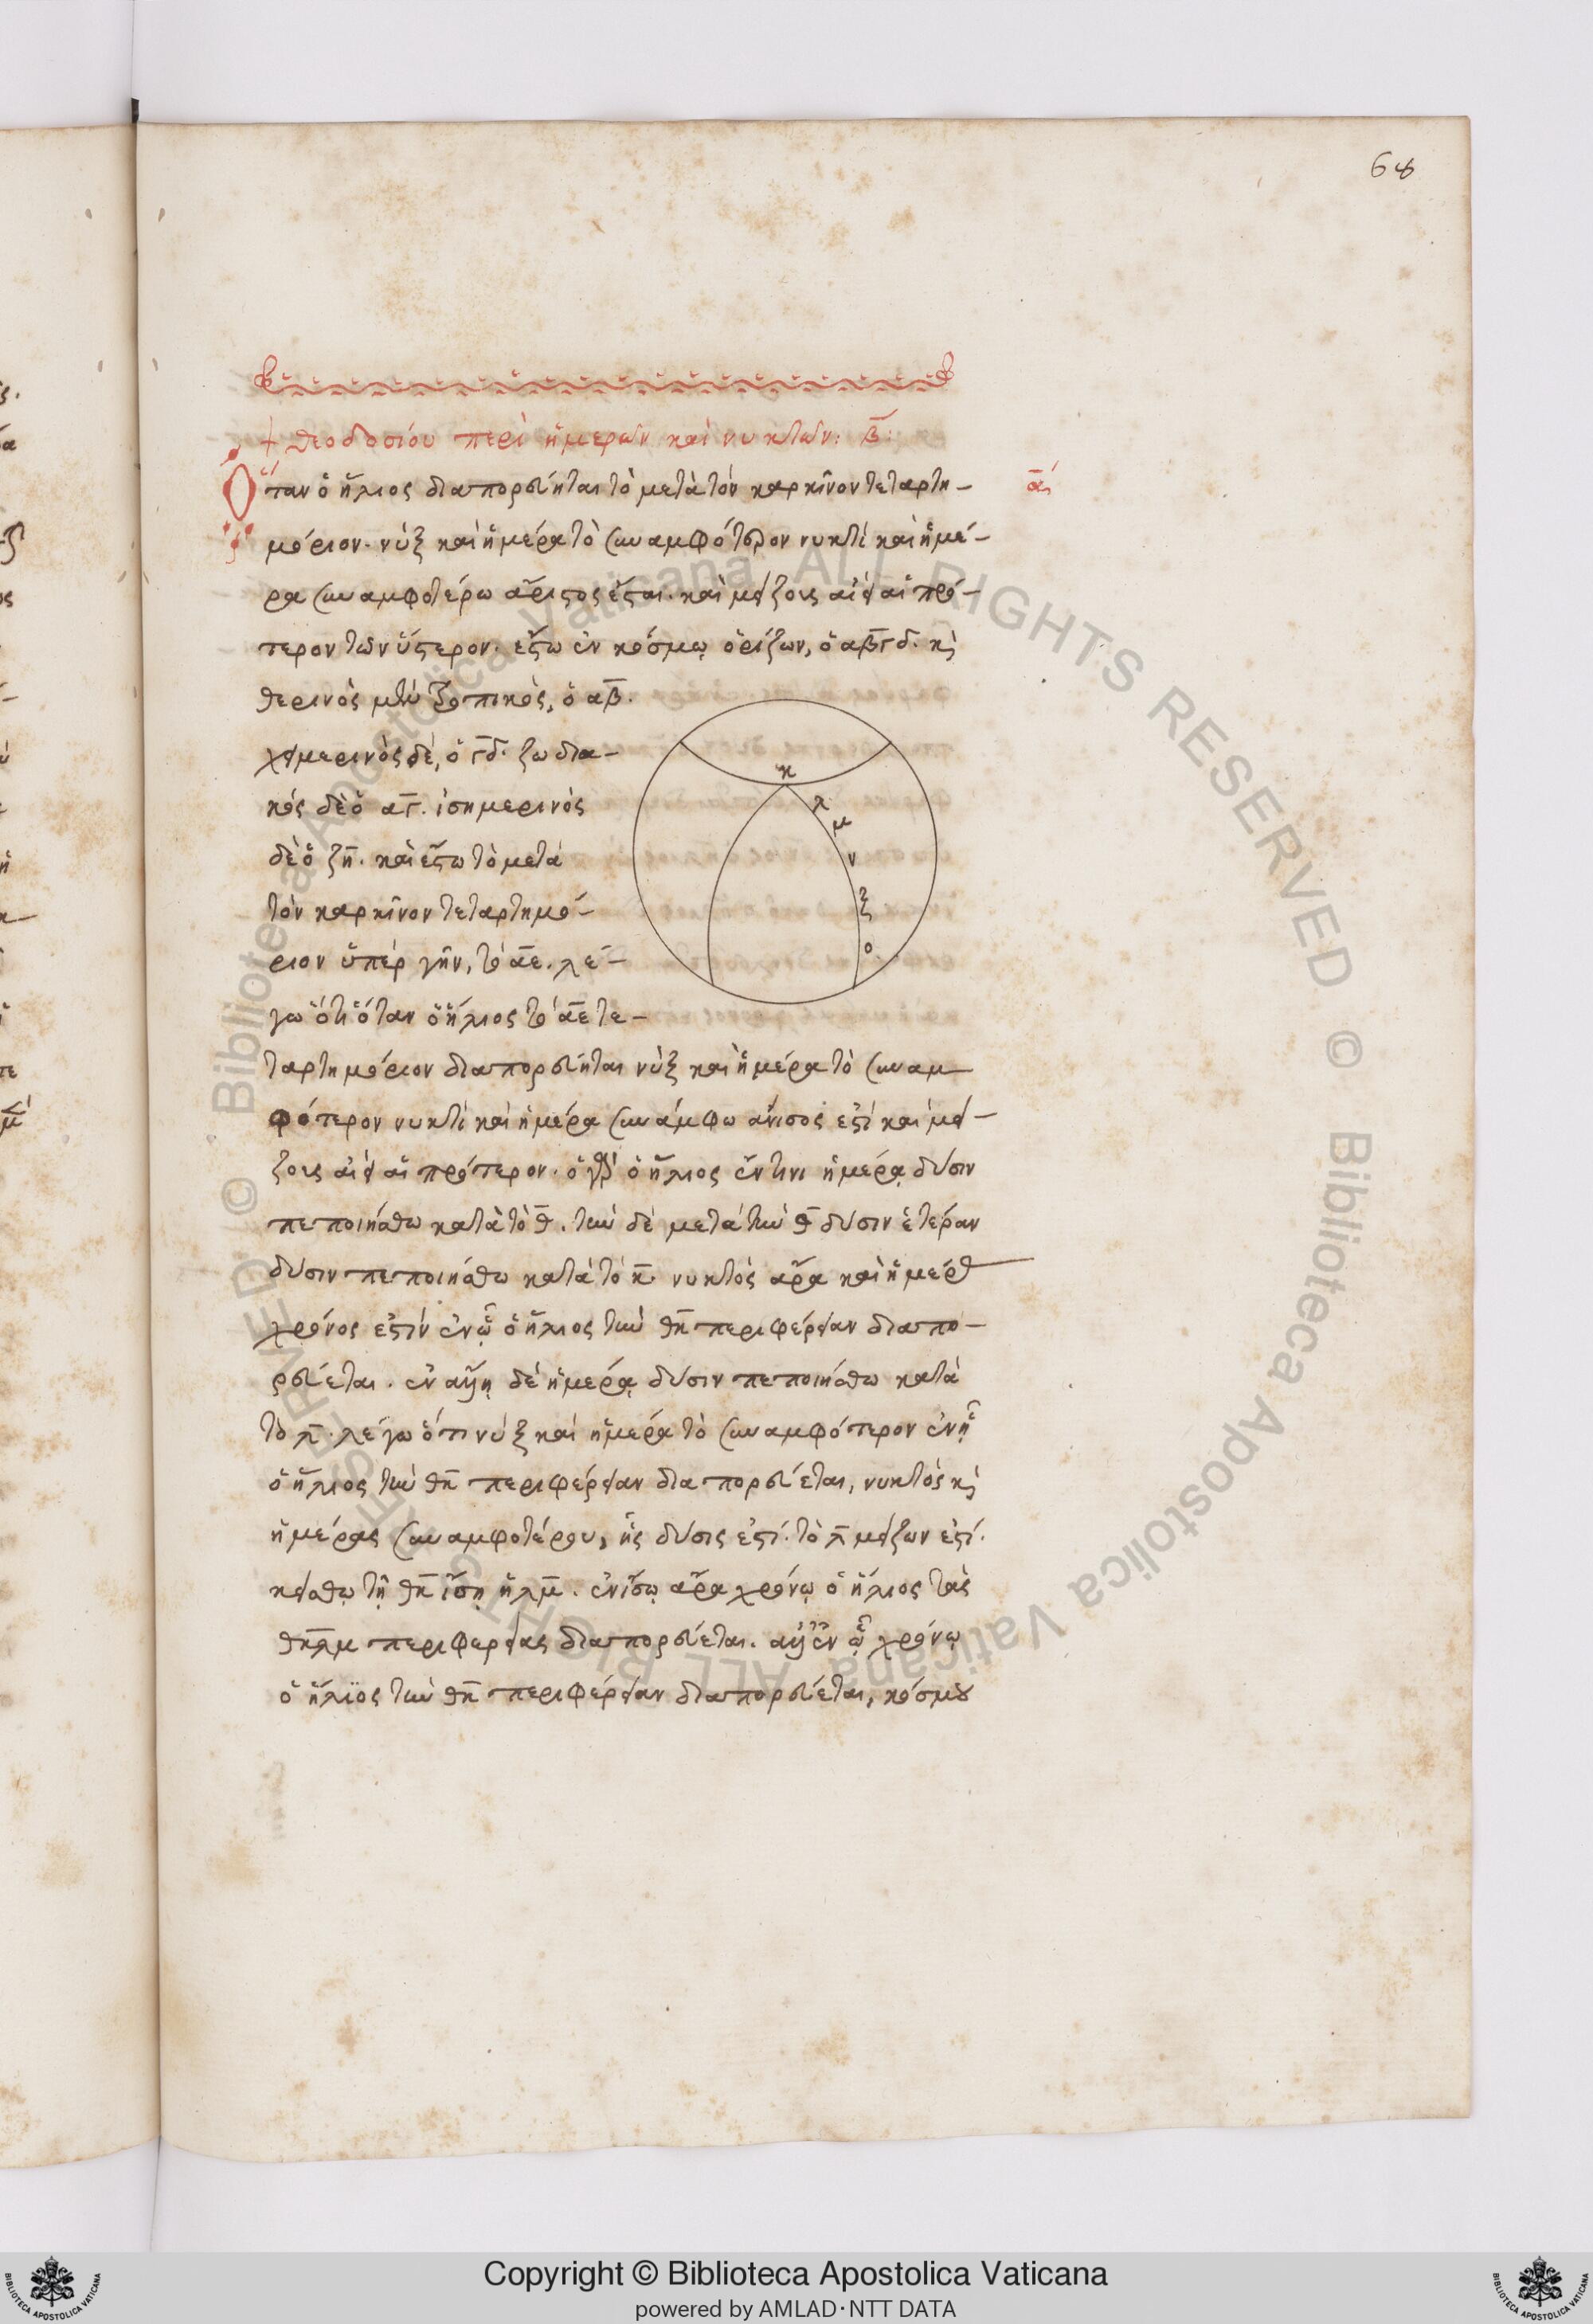 68
+ θεοδοσίου περὶ ἡμερῶν καὶ νυκτῶν: β̄:
Ὅταν ὁ ἥλιος διαπορεύηται τὸ μετὰ τὸν καρκῖνον τεταρτη-
ᾱ
μόριον· νὺξ καὶ ἡμέρα τὸ συναμφότερον νυκτὶ καὶ ἡμέ-
ρα συναμφοτέρω ἄριστος ἔσται. καὶ μείζους αἰεὶ αἱ πρό-
τερον τῶν ὕστερον. ἔστω ἐν κόσμῳ ὁρίζων, ὁ αβ̄γδ. κὶ
θερινὸς μὲν τροπικὸς, ὁ αβ̄.
χειμερινὸς δὲ, ὁ γ̄δ. ζωδια-
κός δὲ ὁ αγ̄. ἰσημερινὸς
δὲ ὁ ζη̄. καὶ ἔστω τὸ μετὰ
τὸν καρκῖνον τεταρτημό-
ριον ὑπὲρ γῆν, τὸ ᾱε. λέ-
γω ὅτι ὅταν ὁ ἥλιος τὸ ᾱε τε-
ταρτημόριον διαπορεύηται νὺξ καὶ ἡμέρα τὸ συναμ
φότερον νυκτὶ καὶ ἡμέρα συνάμφω ἄνισος ἐστὶ καὶ μεί-
ζους αἰεὶ αἱ πρότερον. ὁ γὰρ ὁ ἥλιος ἔν τινι ἡμέρᾳ δύσιν
πεποιήσθω κατὰ τὸ θ̄. τὴν δὲ μετὰ τὴν θ̄ δύσιν ἑτέραν
δύσιν πεποιήσθω κατὰ τὸ κ̄. νυκτὸς ἄρα καὶ ἡμέρας
χρόνος ἐστὶν ἐν ᾧ ὁ ἥλιος τὴν θκ̄ περιφέρειαν διαπο-
ρεύεται. ἐν αὐτῇ δὲ ἡμέρᾳ δύσιν πεποιήσθω κατὰ
τὸ λ̄. λέγω ὅτι νὺξ καὶ ἡμέρα τὸ συναμφότερον ἐν ᾗ
ὁ ἥλιος τὴν θκ̄ περιφέρειαν διαπορεύεται, νυκτὸς κὶ
ἡμέρας συναμφοτέρου, ἧς δύσις ἐστί. τὸ λ̄ μείζων ἐστί.
κείσθω τῇ θκ̄ ἴση ἡ λμ̄. ἐν ἴσῳ ἄρα χρόνῳ ὁ ἥλιος τὰς
θκ̄λμ περιφερείας διαπορεύεται. ἀλλ' ἐν ᾧ χρόνῳ
ὁ ἥλιος τὴν θκ̄ περιφέρειαν διαπορεύεται, κόσμου
κ
λ
μ
ν
ξ
ο
© Biblioteca Apostolica Vaticana ALL RIGHTS RESERVED © Biblioteca Apostolica Vaticana ALL RIGHTS RESERVED
Copyright © Biblioteca Apostolica Vaticana
powered by AMLAD·NTT DATA
BIBLIOTECA APOSTOLICA VATICANA
BIBLIOTECA APOSTOLICA VATICANA